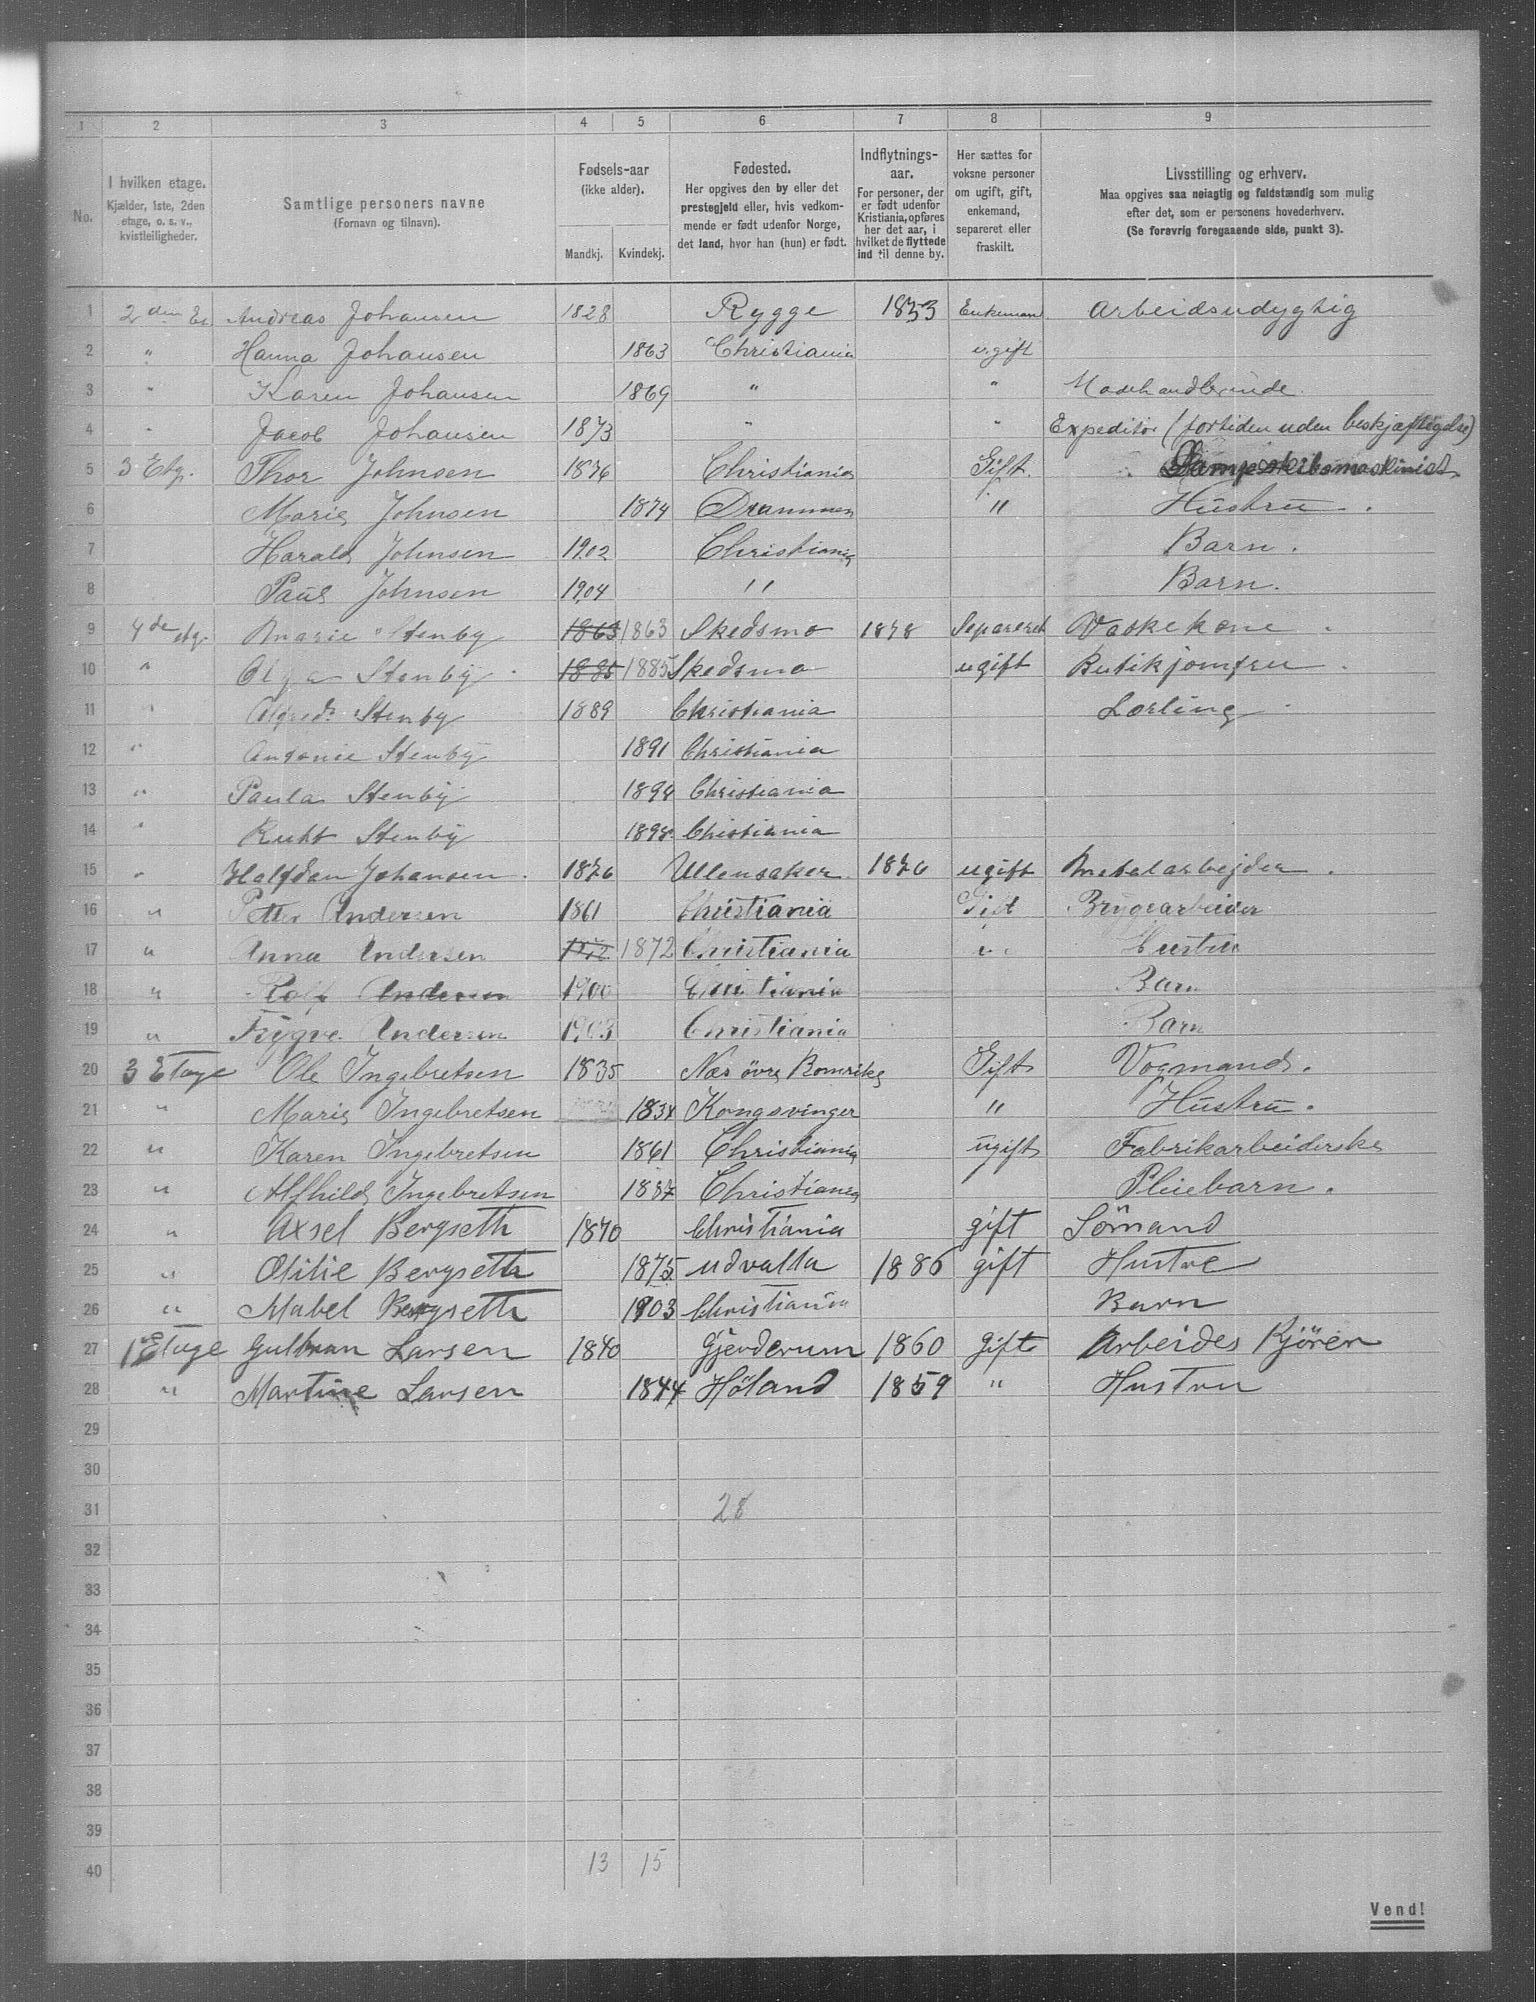 1 2 3 4 5 6 7 8 9
No. I hvilken etage. Kjælder, 1ste, 2den etage, o. s. v., kvistleiligheder. Samtlige personers navne (Fornavn og tilnavn). Fødsels-aar (ikke alder). Mandkj. Kvindekj. Fødested. Her opgives den by eller det prestegjeld eller, hvis vedkommende er født udenfor Norge, det land, hvor han (hun) er født. Indflytnings-aar. For personer, der er født udenfor Kristiania, opføres her det aar, i hvilket de flyttede ind til denne by. Her sættes for voksne personer om ugift, gift, enkemand, separeret eller fraskilt. Livsstilling og erhverv. Maa opgives saa nøiagtig og fuldstændig som mulig efter det, som er personens hovederhverv. (Se forøvrig foregaaende side, punkt 3).
1 2den Et. Andreas Johansen 1828 Rygge 1853 Enkemand Arbeidsudygtig
2 " Hanna Johansen 1863 Christiania ugift
3 " Karen Johansen 1869 " " Modehandlerinde
4 " Jacob Johansen 1873 " " Expeditør (fortiden uden beskjæftigelse)
5 3 Etg. Thor Johnsen 1876 Christiania Gift Dampskibsmaskinist
6 Marie Johnsen 1874 Drammen " Hustru.
7 Harald Johnsen 1902 Christiania Barn.
8 Paul Johnsen 1904 " Barn.
9 4de etg. Marie Stenby 1863 1863 Skedsmo 1878 Separeret Vaskekone
10 " Olga Stenby 1885 1885 Skedsmo ugift Butikjomfru
11 " Alfred Stenby 1889 Christiania Lærling
12 " Antonie Stenby 1891 Christiania
13 " Paula Stenby 1894 Christiania
14 " Ruht Stenby 1898 Christiania
15 " Halfdan Johansen 1876 Ullensaker 1876 ugift Metalarbejder.
16 " Petter Andersen 1861 Christiania Gift Bryggearbeider
17 " Anna Andersen 1872 1872 Christiania " Hustru
18 " Rolf Andersen 1900 Christiania Barn
19 " Trygve Andersen 1903 Christiania Barn
20 3 Etage Ole Ingebretsen 1835 Næs övre Romrike Gift Vogmand.
21 " Marie Ingebretsen 1834 Kongsvinger " Hustru.
22 " Karen Ingebretsen 1861 Christiania ugift Fabrikarbeiderske
23 " Alfhild Ingebretsen 1887 Christiania Pleiebarn.
24 " Axsel Bergseth 1870 Christiania gift Sömand
25 " Otilie Bergseth 1875 udvalla 1886 gift Hustre
26 " Mabel Bergseth 1903 Christiania Barn
27 1 Etage Gulbran Larsen 1840 Gjerderum 1860 gift Arbeides Kjörer
28 " Martine Larsen 1844 Höland 1859 " Hustru
29
30
31 28
32
33
34
35
36
37
38
39
40 13 15
Vend!